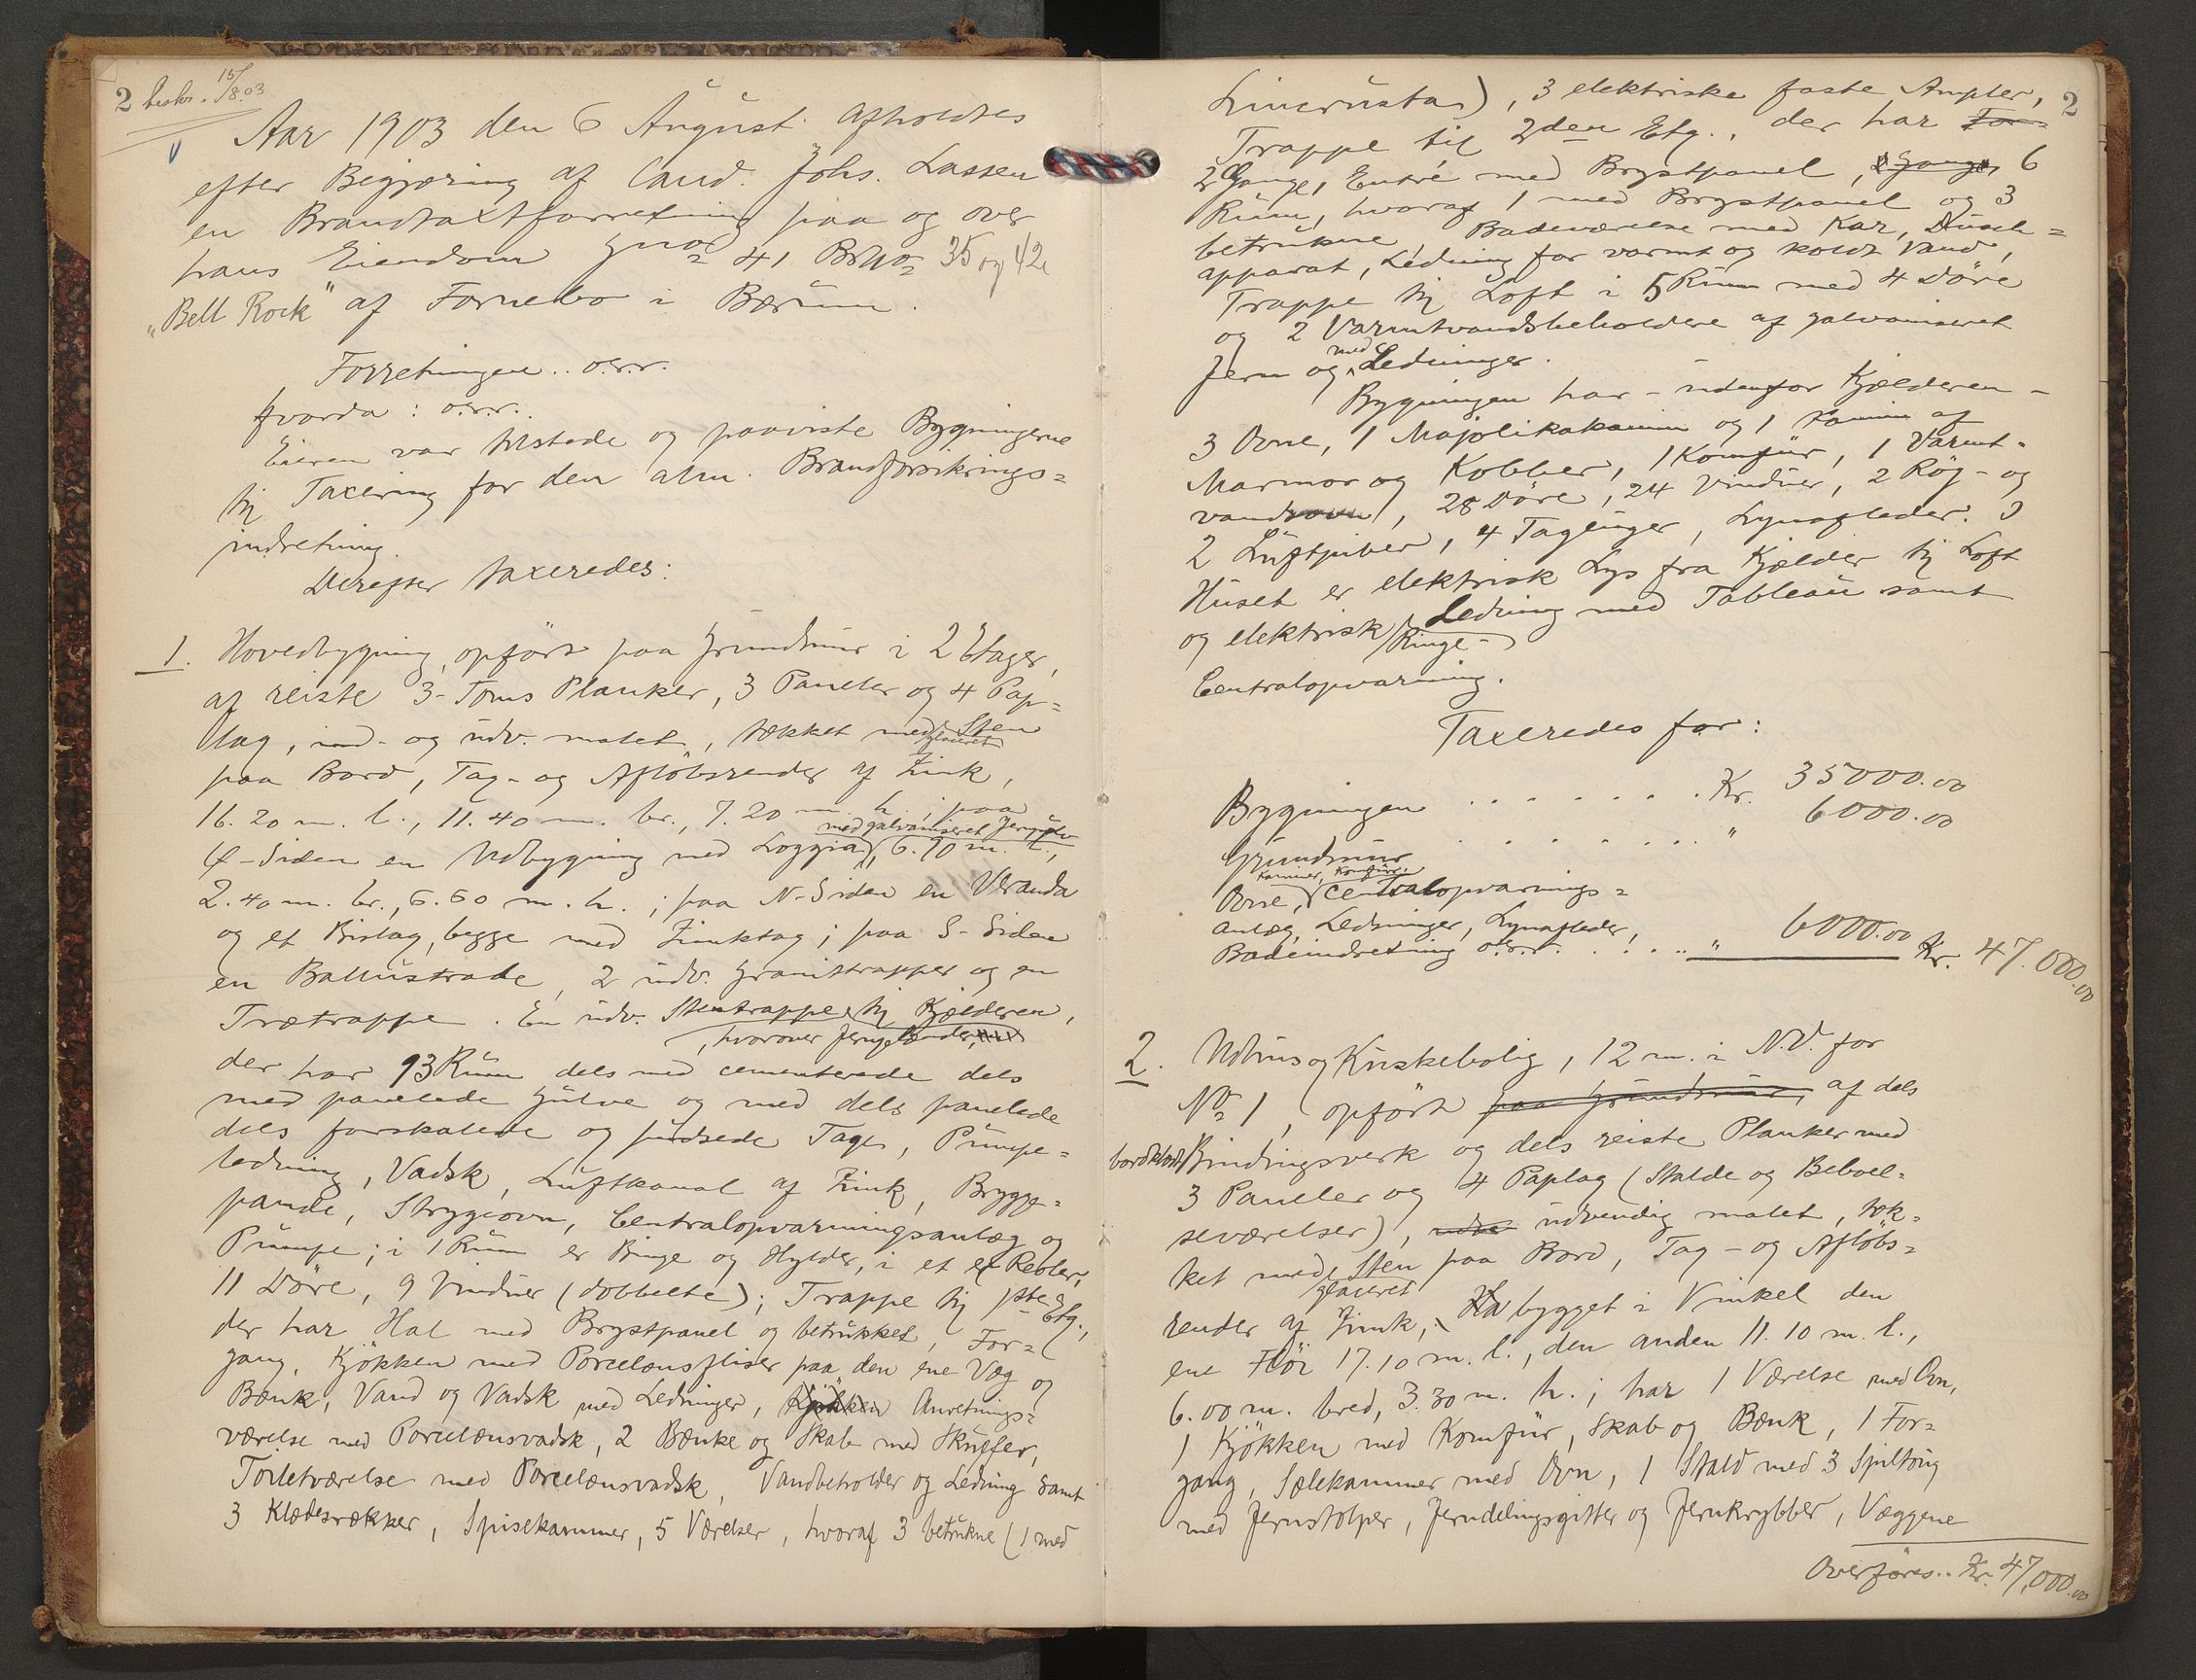 2 beskr. 15/8.03
Aar 1903 den 6 August afholdtes
efter Begjæring af Cand. Johs. Lassen
en Brandtaxtforretning paa og over
hans Eiendom Gno. 41 Bno. 35 og 42
"Bell Rock" af Fornebo i Bærum.
Forretningen .. o.s.v.
hvorda : o.s.v.
Eieren var tilstede og paaviste Bygningerne
til Taxering for den alm. Brandforsikrings=
indretning.
Derefter taxeredes:
1. Hovedbygning, opført paa Grundmur i 2 Etager,
af reiste 3-Toms Planker, 3 Paneler og 4 Pap=
lag, ind- og udv. malet, tækket med glaseret Sten
paa Bord, Tag- og Afløbsrender af Zink,
16.20 m. l., 11.40 m. br., 7.20 m. h.; paa
Ø-Siden en Udbygning med Loggia, med galvaniseret Jerngulv 6.90 m. l.,
2.40 m. br., 6.60 m. h.; paa N-Siden en Veranda
og et Bislag, begge med Zinktag; paa S-Siden
en Ballustrade, 2 udv. Granittrapper og en
Trætrappe. En udv. Stentrappe til Kjælderen,
, hvorover Jerngelænder,
der har 13 Rum dels med cementerede dels
med panelede Gulve og med dels panelede
dels forskalede og pudsede Tage, Pumpe=
ledning, Vadsk, Luftkanal af Zink, Brygge=
pande, Strygeovn, Centralopvarmingsanlæg og
Pumpe; i 1 Rum er Binge og Hylder, i et er Reoler,
11 Døre, 9 Vinduer (dobbelte); Trappe til 1ste Etg.,
der har Hal med Brystpanel og betrukket, For=
gang, Kjøkken med Porcelænsfliser paa den ene Væg og
Bænk, Vand og Vadsk med Ledninger, Kjøkken Anretnings=
værelse med Porcelænsvadsk, 2 Bænke og Skab med Skuffer,
Toiletværelse med Porcelænsvadsk, Vandbeholder og Ledning samt
3 Klædesrækker, Spisekammer, 5 Værelser, hvoraf 3 betrukne (1 med
2
Lincrusta), 3 elektriske faste Ampler,
Trappe til 2den Etg., der har For=
2 Gange, Entré med Brystpanel, 2 Gange, 6
Rum, hvoraf 1 med Brystpanel og 3
betrukne, Badeværelse med Kar, Dusch=
apparat, Ledning for varmt og koldt Vand,
Trappe til Loft i 5 Rum med 4 Døre
og 2 Varmtvandsbeholdere af galvaniseret
Jern og med Ledninger.
Bygningen har – udenfor Kjælderen –
3 Ovne, 1 Majolikakamin og 1 Kamin af
Marmor og Kobber, 1 Komfur, 1 Varmt=
vandsovn, 28 Døre, 24 Vinduer, 2 Røg- og
2 Luftpiber, 4 Tagluger, Lynafleder. I
Huset er elektrisk Lys fra Kjælder til Loft
og elektrisk Ringe- Ledning med Tableau samt
Centralopvarming.
Taxeredes for:
Bygningen . . . . . . . Kr. 35000.00
Grundmur . . . . . . . " 6000.00
Ovne, Kaminer, Komfur, Centralopvarmings=
anlæg, Ledninger, Lynafleder,
Badeindretning o.s.v. . . . . . " 6000.00 Kr. 47.000.00
2. Udhus og Kuskebolig, 12 m. i N.V. for
No 1, opført paa Grundmur, af dels
bordklædt Bindingsverk og dels reiste Planker med
3 Paneler og 4 Paplag (Stalde og Beboel=
seværelser), udv. udvendig malet, tæk=
ket med glaseret Sten paa Bord, Tag- og Afløbs=
render af Zink; bygget i Vinkel den
ene Fløi 17.10 m. l., den anden 11.10 m. l.,
6.00 m. bred, 3.30 m. h.; har 1 Værelse med Ovn,
1 Kjøkken med Komfur, Skab og Bænk, 1 For=
gang, Sælekammer med Ovn, 1 Stald med 3 Spiltoug
med Jernstolper, Jerndelingsgitter og Jernkrybber, Væggene
Overføres .. Kr. 47,000.00